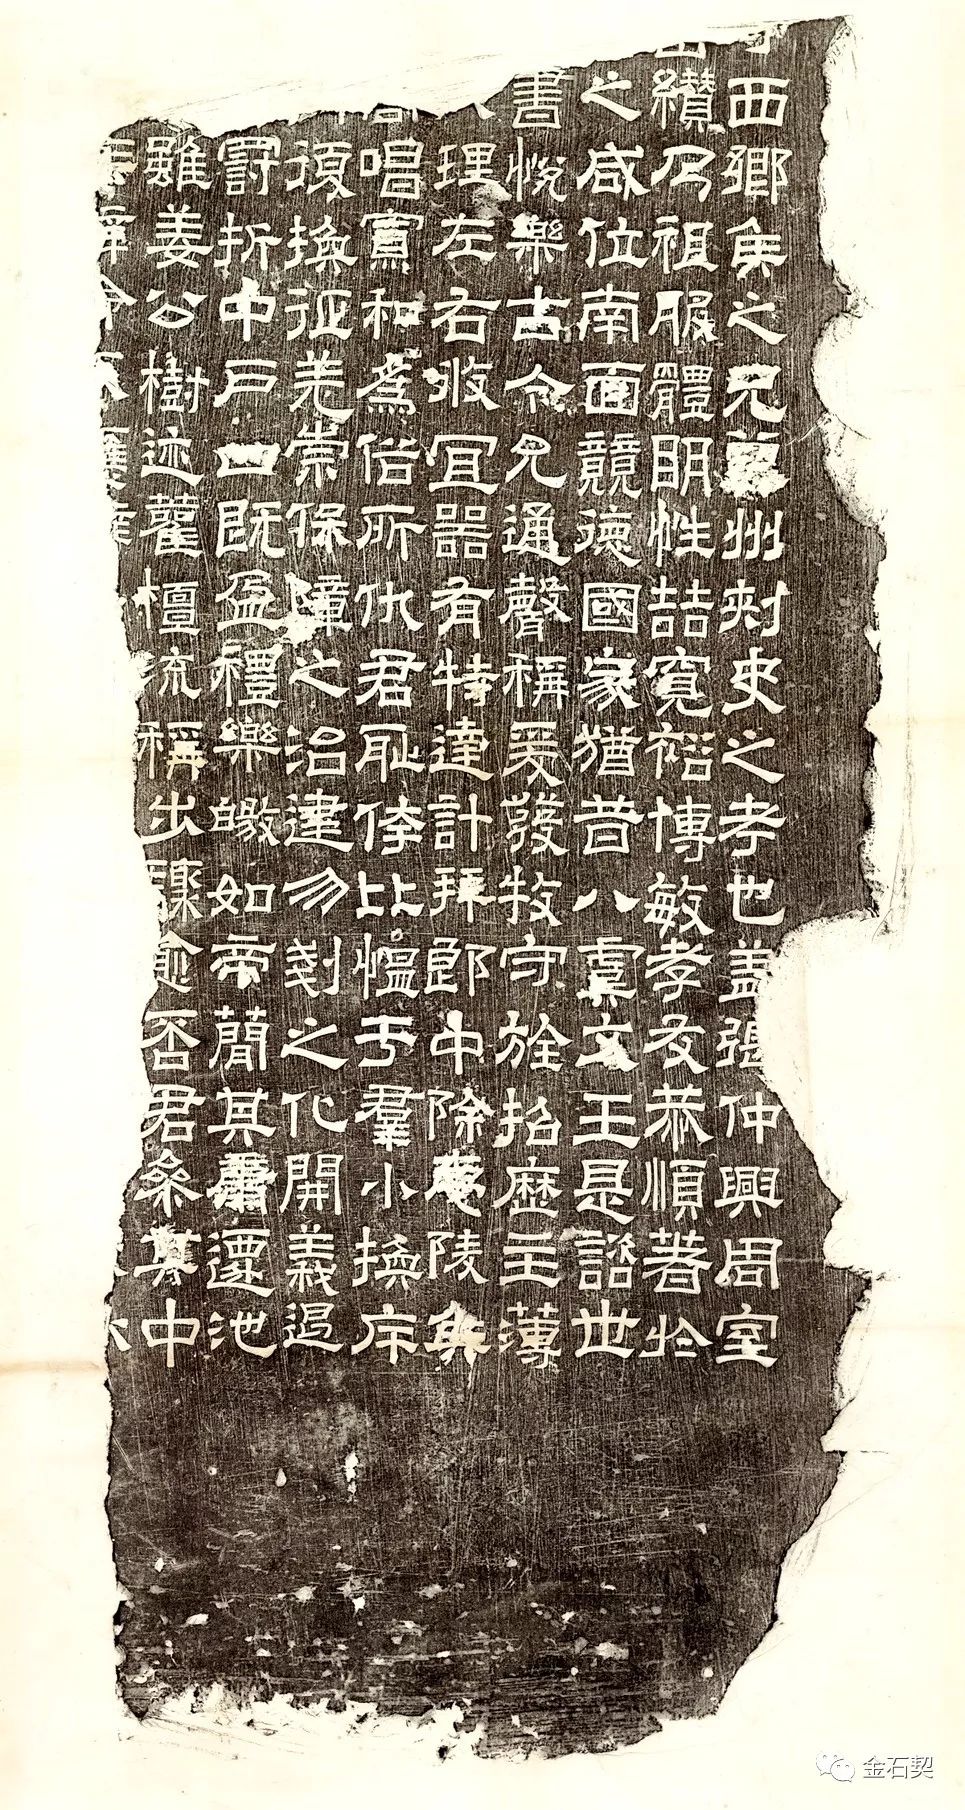 西鄉侯之兄冀州刾史之考也蓋張仲興周室
纘乃祖服體明性喆寬裕博敏孝友恭順著於
之咸位南面競德國家猶昔八虞文王是諮世
書悅樂古今允通聲稱爰發牧守旌招歷主薄
理左右攸宜器有特達計拜郎中除陵侯
唱寡和為俗所仇君恥侉比慍于羣小換序
復換征羌崇保障之治建勿剗之化開義遏
罰折中戶口既盈禮樂皦如帝簡其庸遷池
雖姜公樹迹雚檀流稱步驟愈否君參其中
金石契